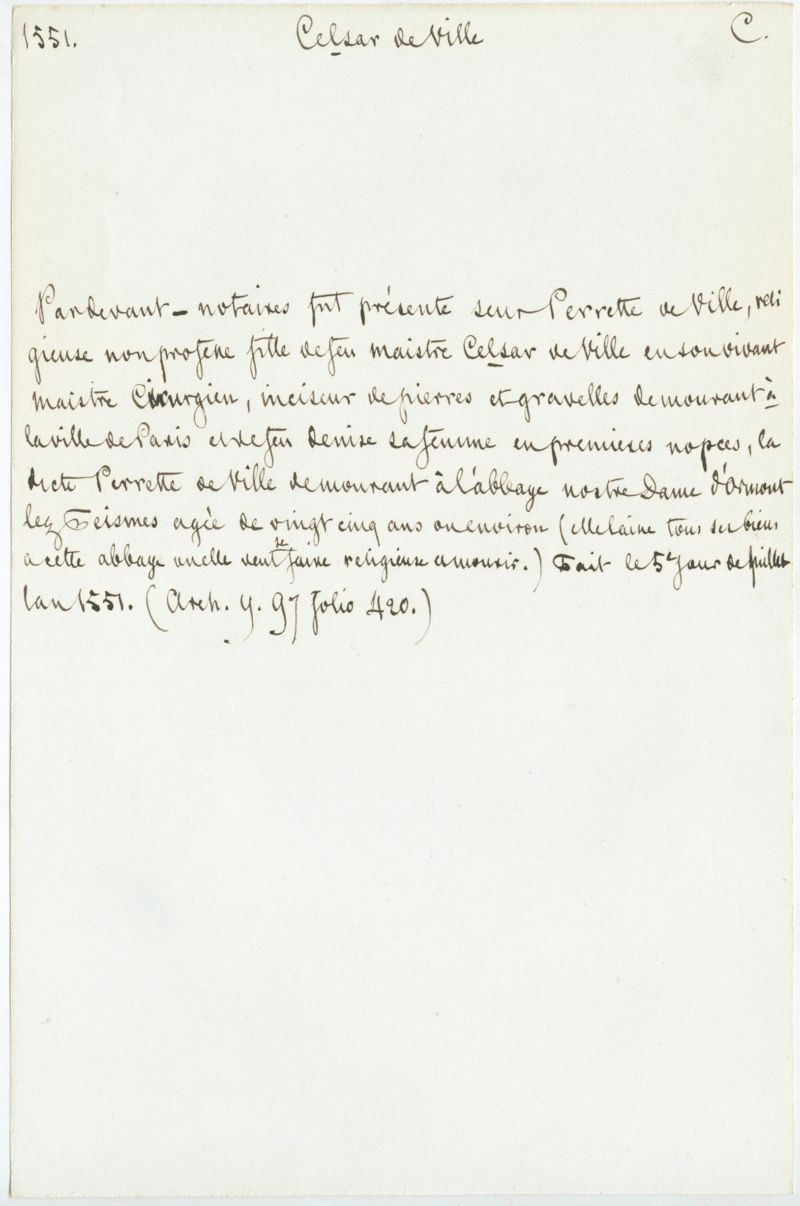 1551. Celsar de Ville C.
Pardevant - notaires fut présente seur Perrette de Ville, reli
gieuse non profene fille de feu maistre Celsar de Ville en son vivant
maistre Cirurgien, inciseur de pierres et gravelles demourant à
la ville de Paris et de feu denise sa femme en premieres nopces, la
dicte Perrette de Ville demourant à l'abbaye nostre Dame d'Ormont
lez Feismes agée de vingt cinq ans ou environ (elle laisse tous ses biens
a cette abbaye ou elle veut se faire religieuse et mourir.) Fait le 5e jour de juillet
lan 1551. (Arch. Y. 97 folio 420.)